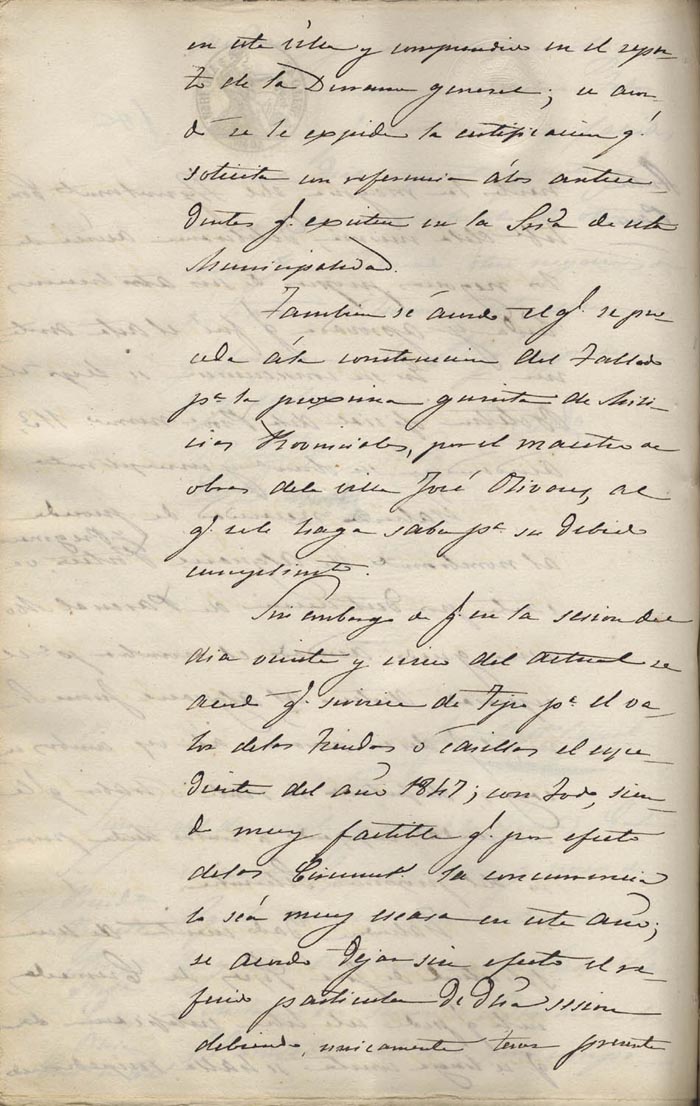 en esta villa y comprendido en el repar-
to de la Derrama general; se acor-
dó se le expida la certificacion q.
solicita con referencia álos antece-
dentes q. existen en la Sria de esta
Municipalidad.
Tambien se acordó el q. se pro-
ceda ála construccion del Tallado
pa. la proxima quinta de Mili-
cias Provinciales, por el maestro de
obras dela villa José Olivares, al
q. se le haga saber pa. su debido
cumplimto.
Sin embargo de q. en la sesion del
dia veinte y cinco del actual se
acordó q. sirviera de tipo pa. el va-
lor delas tiendas ó casillas el espe-
diente del año 1847; con todo, sien-
do muy factible q. por efecto
delas Circunst. la concurrencia
lo séa muy escasa en este año;
se acordó dejar sin efecto el re-
ferido particular de dha sesion
debiendo, unicamente tener presente